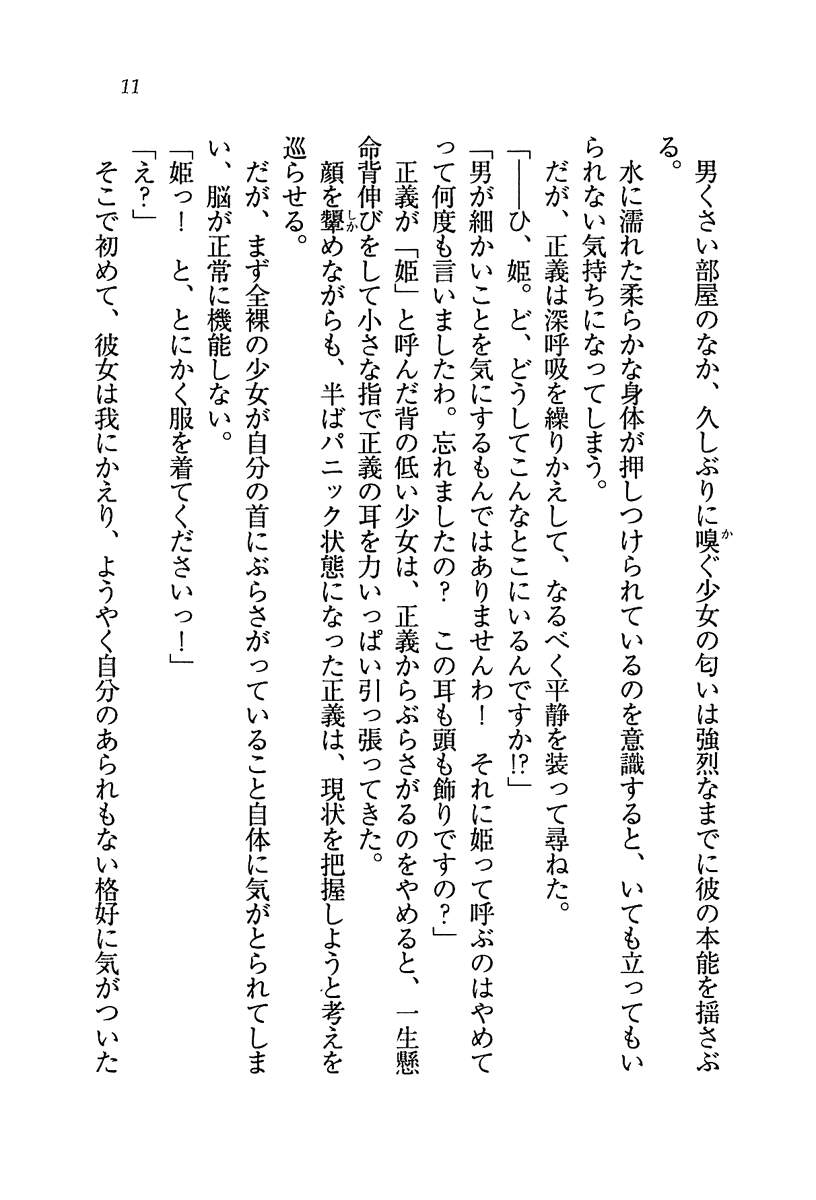 11
男くさい部屋のなか、久しぶりに嗅ぐ少女の匂いは強烈なまでに彼の本能を揺さぶ
る。
水に濡れた柔らかな身体が押しつけられているのを意識すると、いても立ってもい
られない気持ちになってしまう。
だが、正義は深呼吸を繰りかえして、なるべく平静を装って尋ねた。
「――ひ、姫。ど、どうしてこんなとこにいるんですか!?」
「男が細かいことを気にするもんではありませんわ！　それに姫って呼ぶのはやめて
って何度も言いましたわ。忘れましたの？　この耳も頭も飾りですの？」
正義が「姫」と呼んだ背の低い少女は、正義からぶらさがるのをやめると、一生懸
命背伸びをして小さな指で正義の耳を力いっぱい引っ張ってきた。
顔を顰めながらも、半ばパニック状態になった正義は、現状を把握しようと考えを
巡らせる。
だが、まず全裸の少女が自分の首にぶらさがっていること自体に気がとられてしま
い、脳が正常に機能しない。
「姫っ！　と、とにかく服を着てくださいっ！」
「え？」
そこで初めて、彼女は我にかえり、ようやく自分のあられもない格好に気がついた